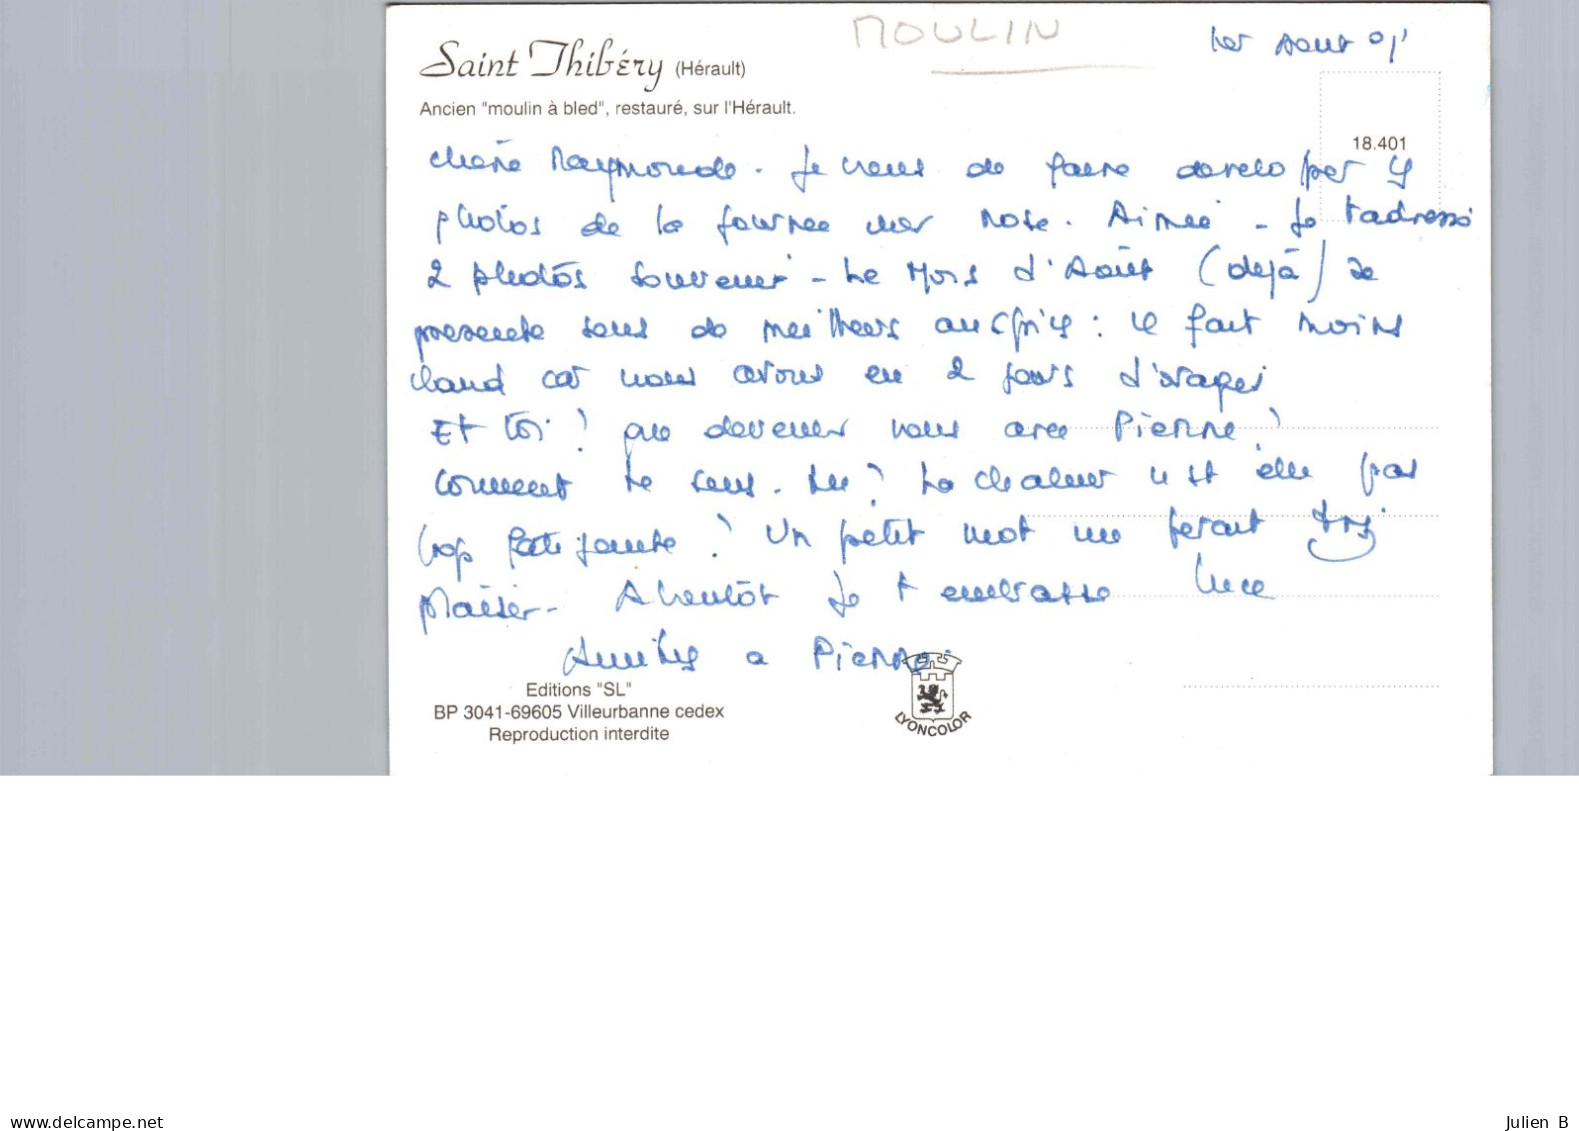 MOULIN
1er Aout 01
Saint Thibéry (Hérault)
Ancien "moulin à bled", restauré, sur l'Hérault.
18.401
chère Raymonde. Je viens de faire develo per
photos de la journee chez Rose. Aimée - Je t'adresse
2 photos souvenir - Le Mois d'Août (dejà) se
presente sous de meilleurs auspices : il fait moins
chaud car nous avons eu 2 jours d'orages
Et toi ? que devenez vous avec Pierre ?
Comment te sens. tu ? La chaleur n'est elle pas
trop fatigante ? Un petit mot me ferait
plaisir - A bientôt Je t'embrasse Luce
Amitiés a Pierre.
Editions "SL"
BP 3041-69605 Villeurbanne cedex
Reproduction interdite
LYONCOLOR
www.delcampe.net
Julien B